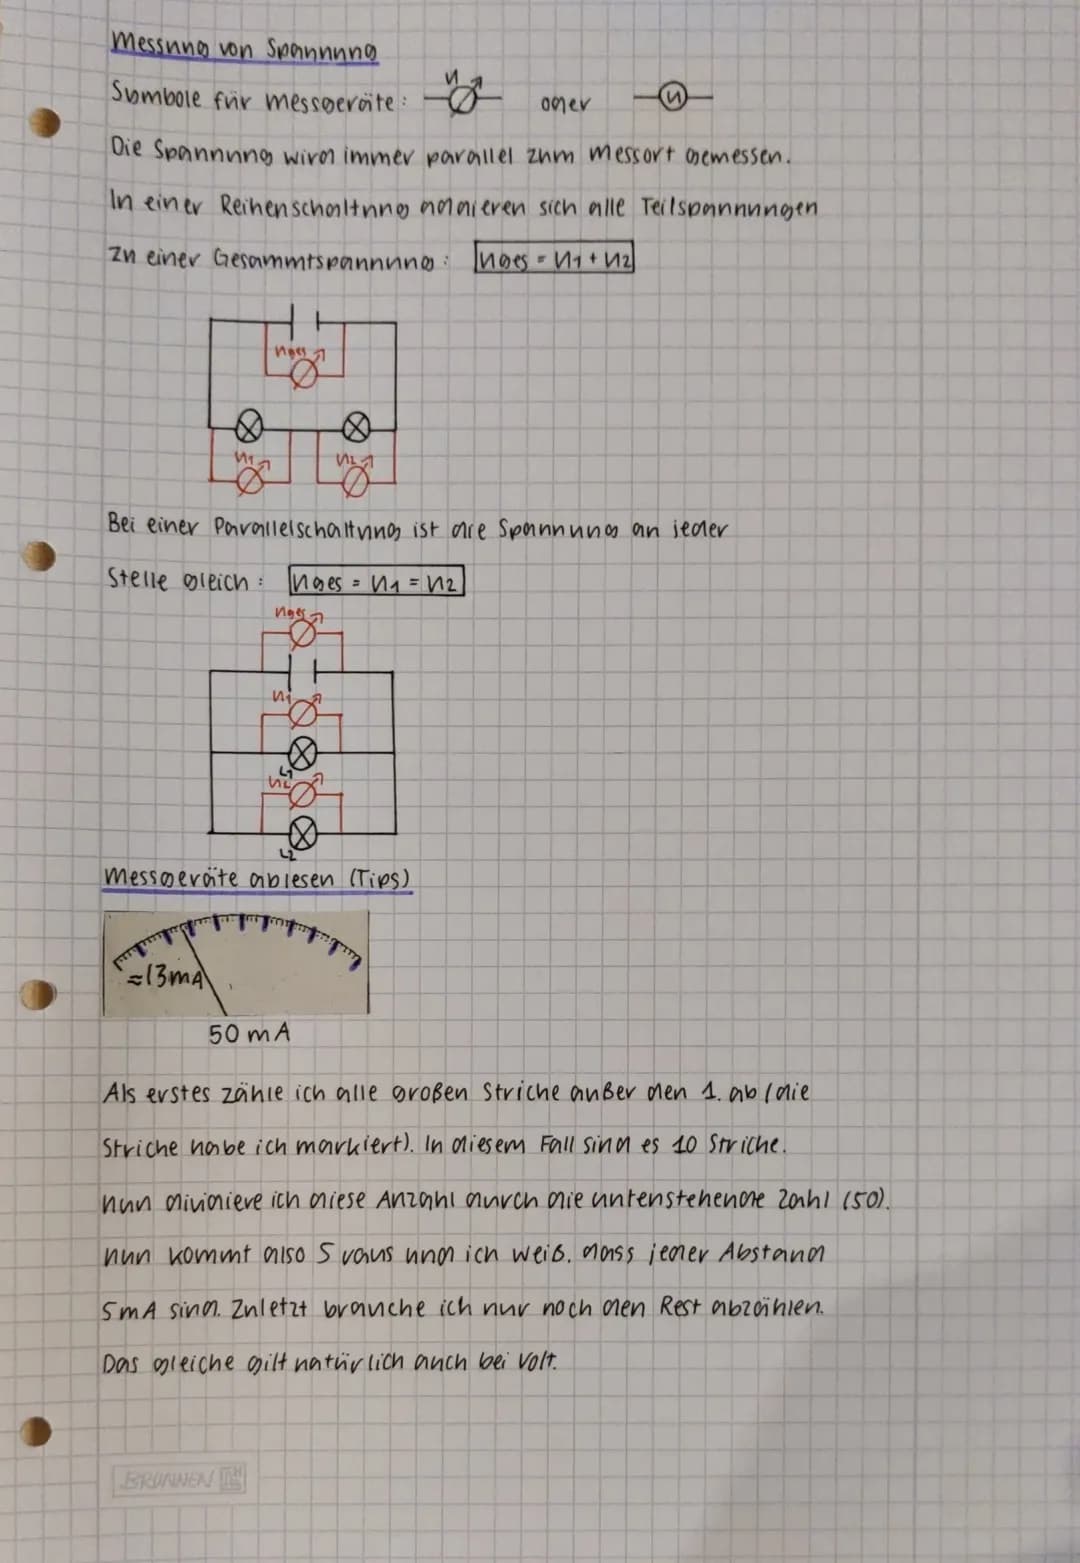 Messung von Spannung
Symbole für Messgeräte: U oder U
Die Spannung wird immer parallel zum Messort gemessen.
In einer Reihenschaltung addieren sich alle Teilspannungen
zu einer Gesammtspannung: Uges = U1 + U2
Uges
U1 U2
Bei einer Parallelschaltung ist die Spannung an jeder
Stelle gleich: Uges = U1 = U2
Uges
U1
L1
U2
L2
Messgeräte ablesen (Tips)
≈13mA
50 mA
Als erstes zähle ich alle großen Striche außer den 1. ab (die
Striche habe ich markiert). In diesem Fall sind es 10 Striche.
Nun dividiere ich diese Anzahl durch die untenstehende Zahl (50).
Nun kommt also 5 raus und ich weiß, dass jeder Abstand
5mA sind. Zuletzt brauche ich nur noch den Rest abzählen.
Das gleiche gilt natürlich auch bei Volt.
BRUNNEN